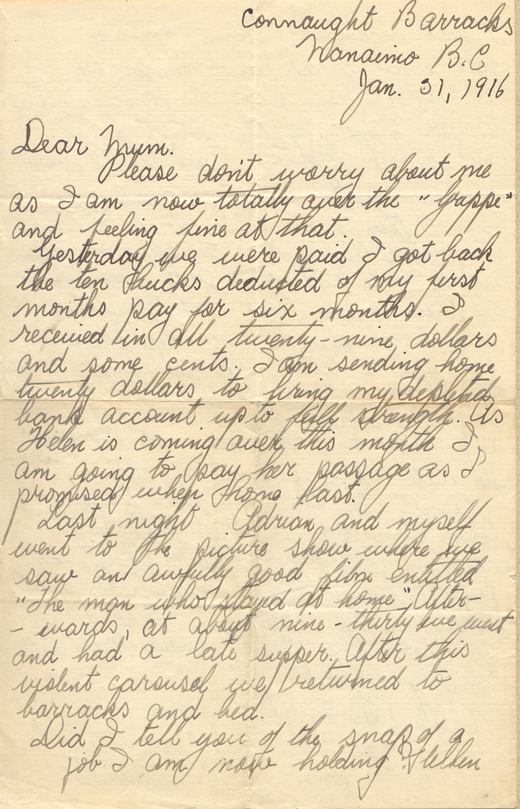 Connaught Barracks
Nanaimo B.C
Jan. 31, 1916
Dear Mum.
Please don't worry about me
as I am now totally over the "Grappe"
and feeling fine at that.
Yesterday we were paid I got back
the ten bucks deducted of my first
months pay for six months. I
received in all twenty-nine dollars
and some cents. I am sending home
twenty dollars to bring my depleted
bank account up to full strength. As
Helen is coming over this month I
am going to pay her passage as I
promised when home last.
Last night Adrian and myself
went to the picture show where we
saw an awfully good film entitled
"The man who stayed at home", After-
- wards, at about nine-thirty we went
and had a late supper. After this
violent carousel we returned to
barracks and bed.
Did I tell you of the snap of a
job I am now holding?